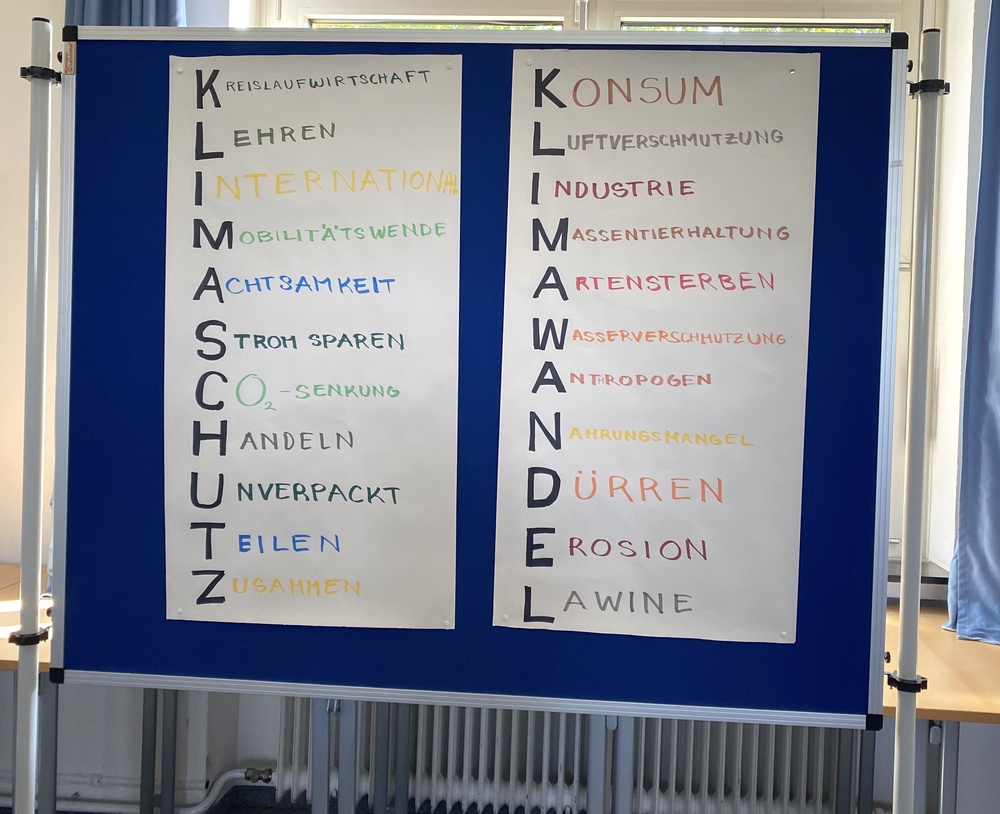 KREISLAUFWIRTSCHAFT
LEHREN
INTERNATIONAL
MOBILITÄTSWENDE
ACHTSAMKEIT
STROM SPAREN
CO₂-SENKUNG
HANDELN
UNVERPACKT
TEILEN
ZUSAMMEN
KONSUM
LUFTVERSCHMUTZUNG
INDUSTRIE
MASSENTIERHALTUNG
ARTENSTERBEN
WASSERVERSCHMUTZUNG
ANTHROPOGEN
NAHRUNGSMANGEL
DÜRREN
EROSION
LAWINE